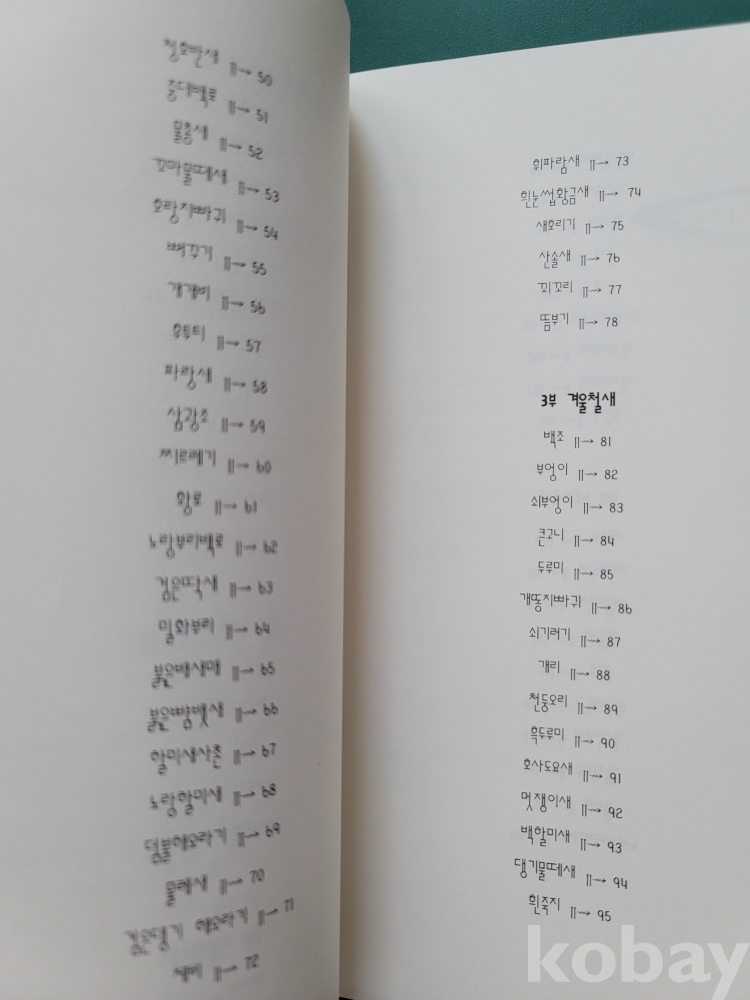 청호반새 ||→ 50
중대백로 ||→ 51
물총새 ||→ 52
꼬마물떼새 ||→ 53
호랑지빠귀 ||→ 54
뻐꾸기 ||→ 55
개개비 ||→ 56
후투티 ||→ 57
파랑새 ||→ 58
삼광조 ||→ 59
찌르레기 ||→ 60
황로 ||→ 61
노랑부리백로 ||→ 62
검은딱새 ||→ 63
밀화부리 ||→ 64
붉은배새매 ||→ 65
붉은뺨멧새 ||→ 66
할미새사촌 ||→ 67
노랑할미새 ||→ 68
덤불해오라기 ||→ 69
물레새 ||→ 70
검은댕기 해오라기 ||→ 71
||→ 72
휘파람새 ||→ 73
흰눈썹황금새 ||→ 74
새호리기 ||→ 75
산솔새 ||→ 76
꾀꼬리 ||→ 77
뜸부기 ||→ 78
3부 겨울철새
백조 ||→ 81
부엉이 ||→ 82
쇠부엉이 ||→ 83
큰고니 ||→ 84
두루미 ||→ 85
개똥지빠귀 ||→ 86
쇠기러기 ||→ 87
개리 ||→ 88
천둥오리 ||→ 89
흑두루미 ||→ 90
호사도요새 ||→ 91
멋쟁이새 ||→ 92
백할미새 ||→ 93
댕기물떼새 ||→ 94
흰죽지 ||→ 95
kobay